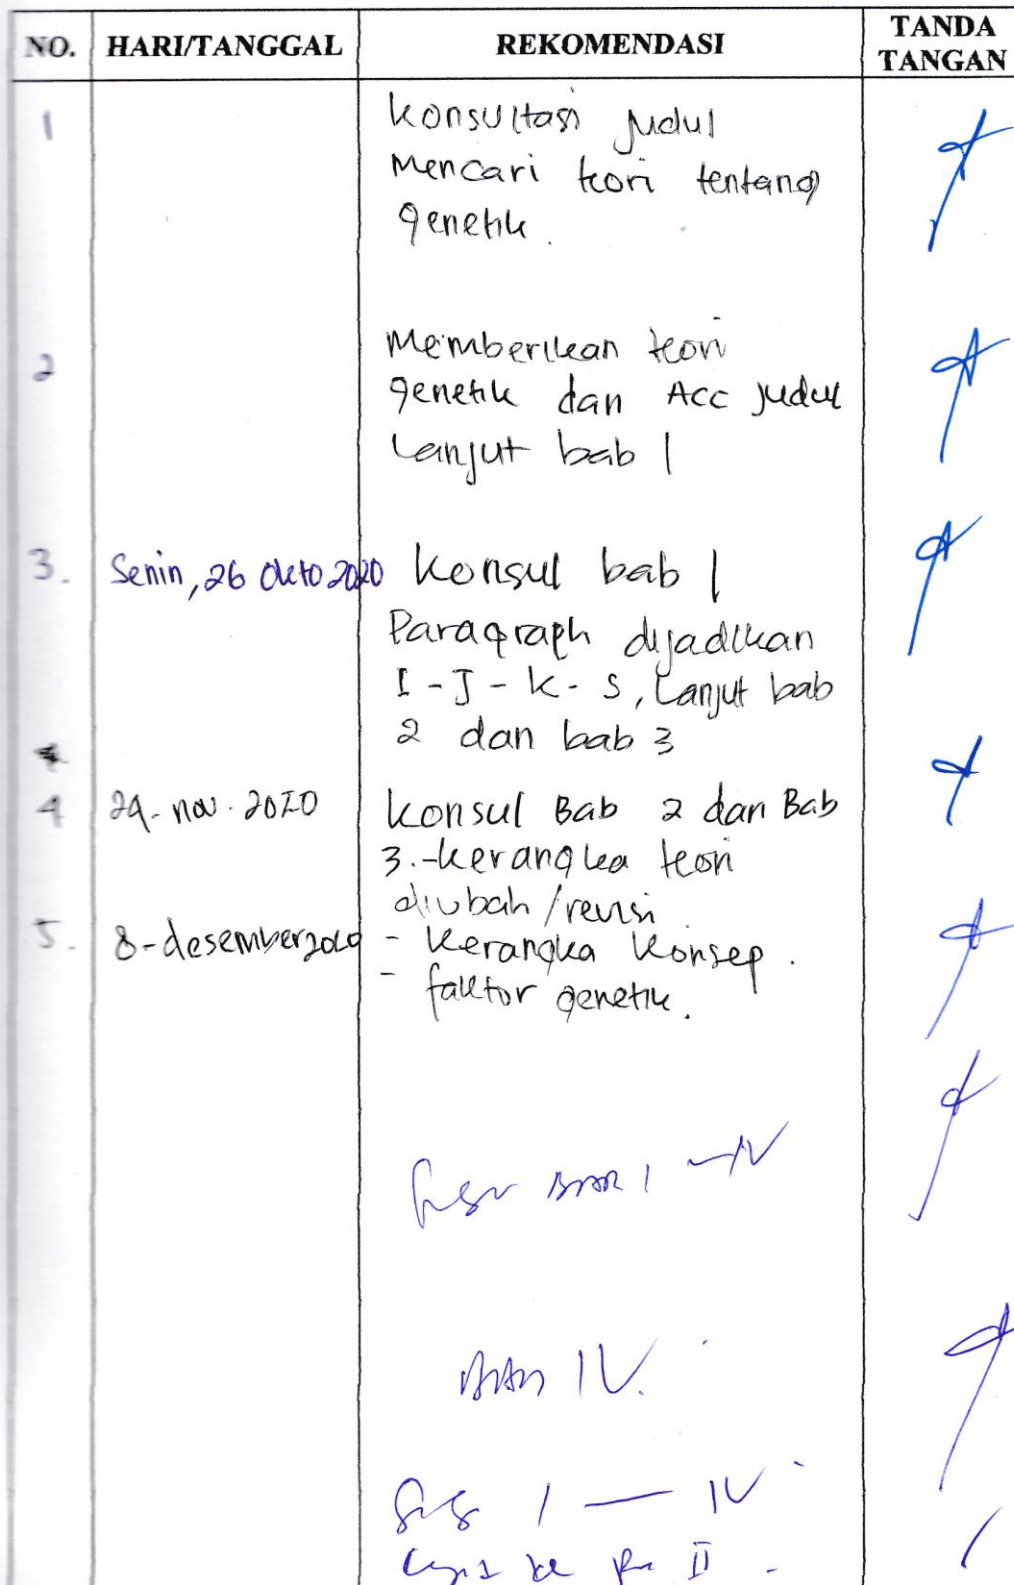 NO. HARI/TANGGAL REKOMENDASI TANDA TANGAN
1 Konsultasi judul
Mencari teori tentang
genetik.
2 Memberikan teori
genetik dan Acc judul
Lanjut bab 1
3. Senin, 26 Okto 2020 Konsul bab 1
Paragraph dijadikan
I - J - K - S, Lanjut bab
2 dan bab 3
4 nov. 2020 Konsul Bab 2 dan Bab
3.-kerangka teori
diubah/revisi
5. 8-desember - Kerangka Konsep.
- faktor genetik.
I - IV
IV.
I — IV
II